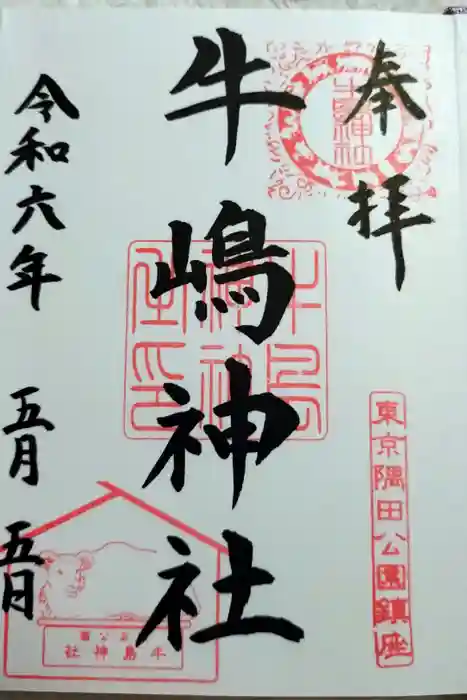 奉拝
牛嶋神社
令和六年 五月 五日
牛嶋神社
東京隅田公園鎮座
牛島神社